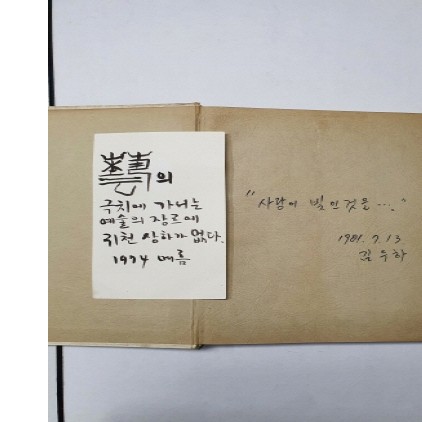 藝의
극치에 가서는
예술의 장르에
귀천 상하가 없다.
1974 여름
"사랑이 빛인 것을…."
1981. 7. 13
김 우 하